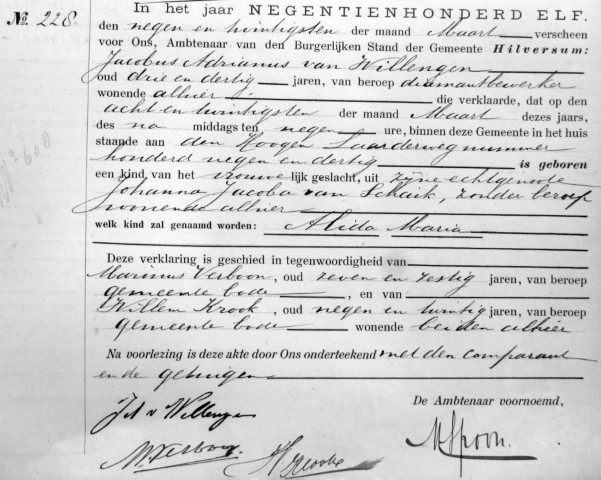 No. 228.
In het jaar NEGENTIENHONDERD ELF.
den negen en twintigsten der maand Maart verscheen
voor Ons, Ambtenaar van den Burgerlijken Stand der Gemeente Hilversum:
Jacobus Adrianus van Willengen
oud drie en dertig jaren, van beroep diamantbewerker
wonende alhier
die verklaarde, dat op den
acht en twintigsten der maand Maart dezes jaars,
des na middags ten negen ure, binnen deze Gemeente in het huis
staande aan den Hoogen Laarderweg nummer
honderd negen en dertig is geboren
een kind van het vrouwelijk geslacht, uit zijne echtgenoote
Johanna Jacoba van Schaik, zonder beroep
wonende alhier
welk kind zal genaamd worden: Alida Maria
Deze verklaring is geschied in tegenwoordigheid van
Marinus Verboon, oud zeven en zestig jaren, van beroep
gemeente bode, en van
Willem Krook, oud negen en twintig jaren, van beroep
gemeente bode wonende beiden alhier
Na voorlezing is deze akte door Ons onderteekend met den comparant
en de getuigen
De Ambtenaar voornoemd,
J A v Willengen
M Verboon
W Krook